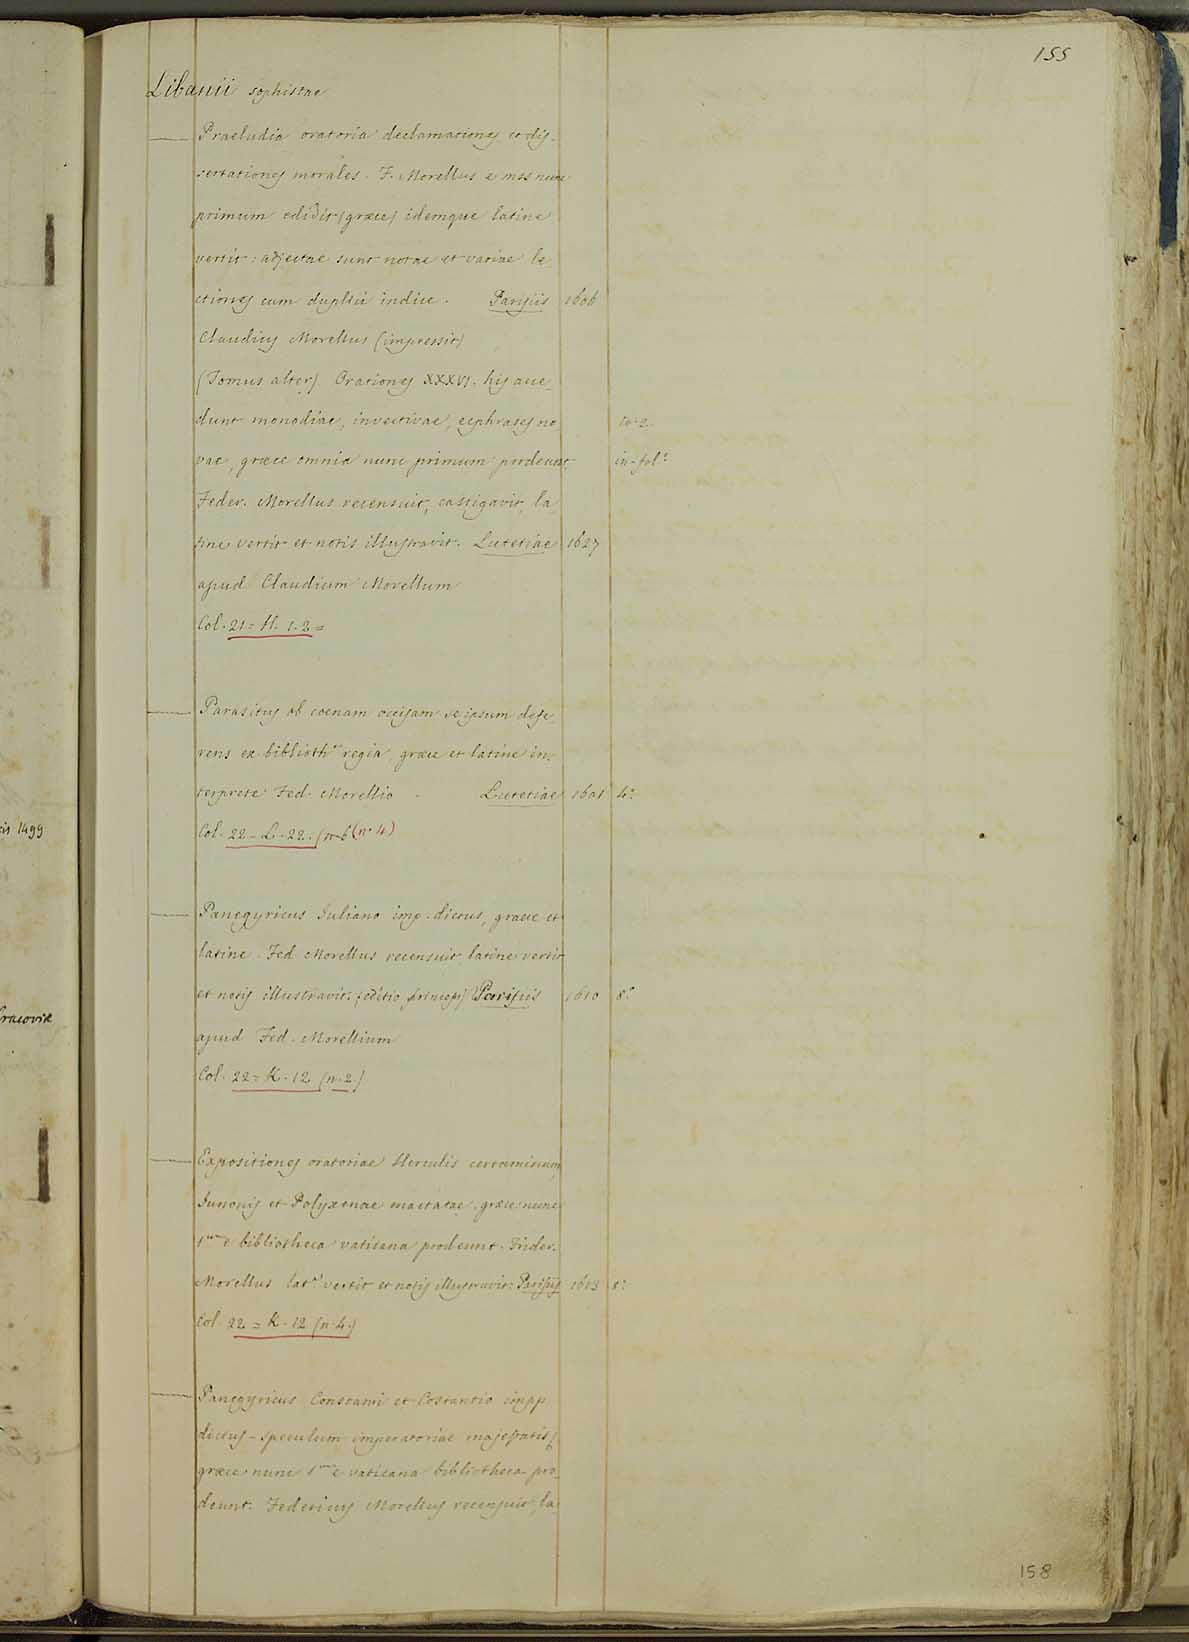 155
Libanii sophistae
Praeludia oratoria declamationes et dis-
sertationes morales. F. Morellus e mss nunc
primum edidit (graece) idemque latine
vertit: adjectae sunt notae et variae le-
ctiones cum duplici indice. Parisiis 1606
Claudius Morellus (impressit)
(Tomus alter) Orationes XXXVI. his acce-
dunt monodiae, invectivae, ecphrases no to. 2.
vae, graece omnia nunc primum prodeunt in-fol.º
Feder. Morellus recensuit, castigavit, la
tine vertit et notis illustravit. Lutetiae 1627
apud Claudium Morellum
Col. 21 = H. 1. 2 =
Parasitus ob coenam occisam se ipsum defe-
rens ex biblioth.ca regia, graece et latine in-
terprete Fed. Morellio. Lutetiae 1601 4.º
Col. 22 - L. 22. (n. 6 (n. 4)
Panegyricus Juliano imp. dictus, graece et
latine. Fed Morellus recensuit latine vertit
et notis illustravit. (editio princeps) Parisiis 1610 8.º
apud Fed. Morellium
Col. 22 = K. 12 (n. 2.)
Expositiones oratoriae Herculis certaminum,
Junonis et Polyxenae mactatae. graece nunc
1.um e bibliotheca vaticana prodeunt. Frider.
Morellus lat.e vertit et notis illustravit. Parisiis 1613 8.º
Col. 22 = K. 12 (n. 4.)
Panegyricus Constanti et Costantio impp
dictus - speculum imperatoriae majestatis (
graece nunc 1.um e vaticana bibliotheca pro-
deunt. Federicus Morellus recensuit, la-
158
cis 1499
Cracoviae